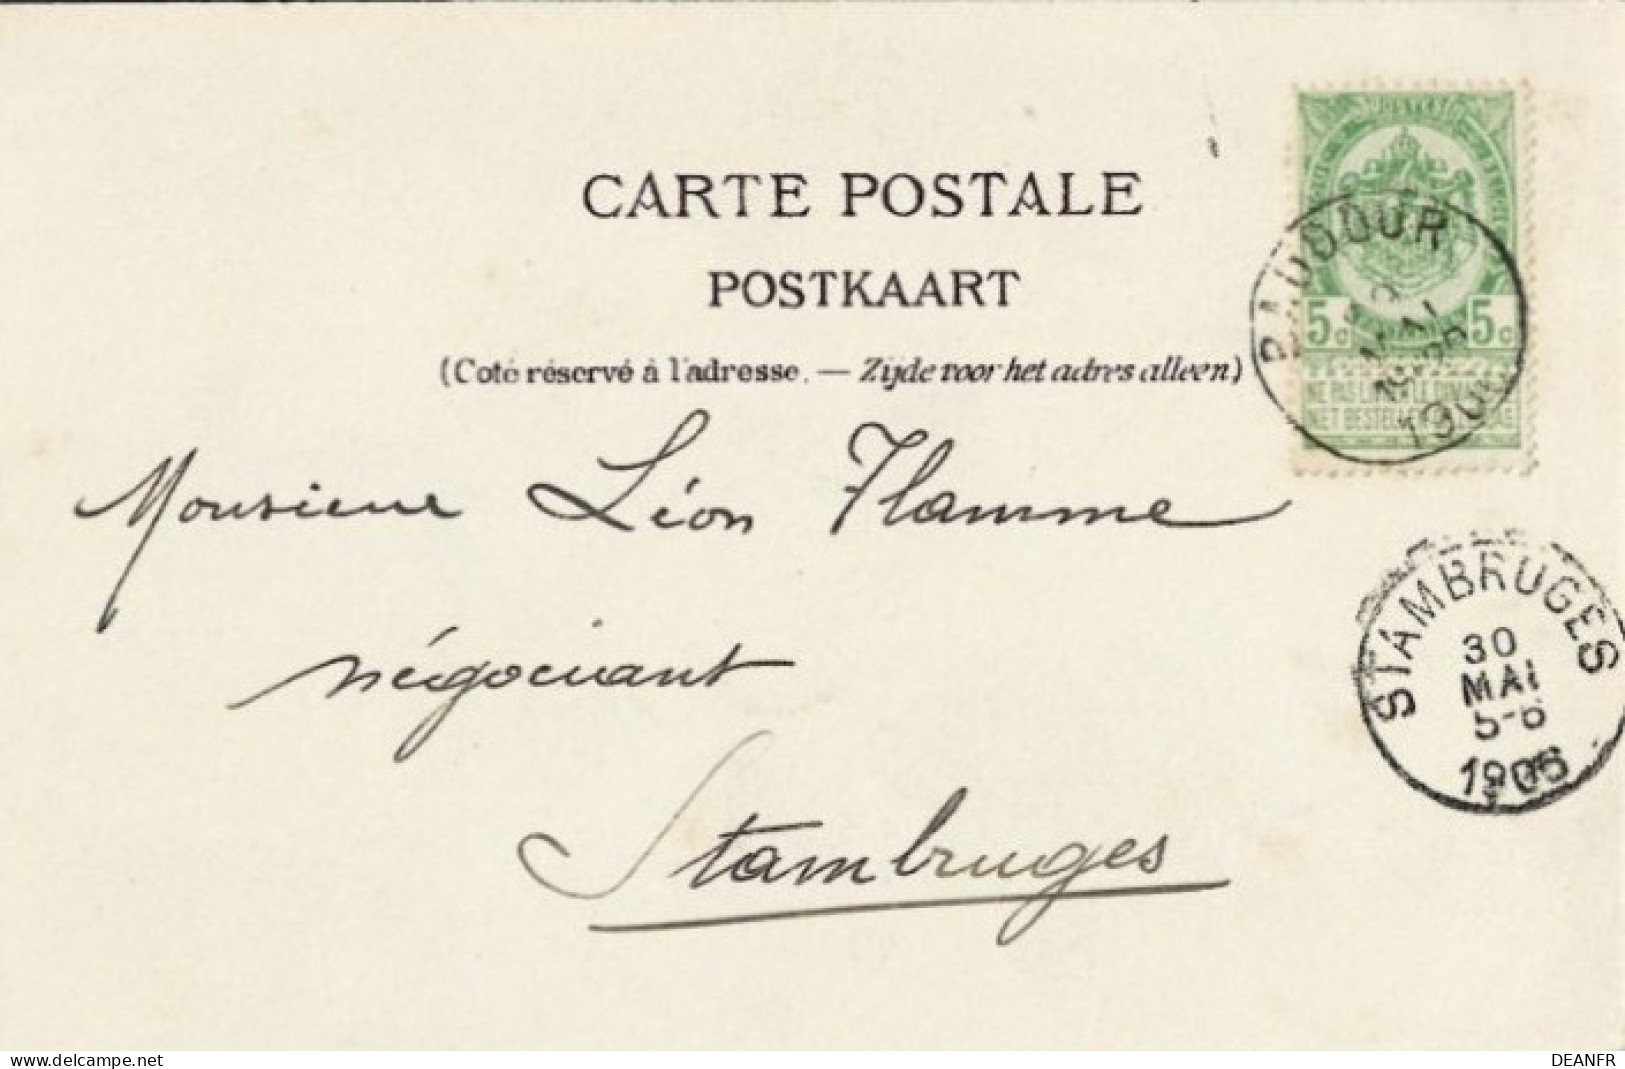 CARTE POSTALE
POSTKAART
(Coté réservé à l'adresse. — Zijde voor het adres alleen)
Monsieur Léon Flamme
négociant
Stambruges
POSTES
5c 5c
NE PAS LE DIMANCHE
NIET BESTELLEN
BAUDOUR
MAI
1906
STAMBRUGES
30
MAI
5-6
1906
www.delcampe.net
DEANFR